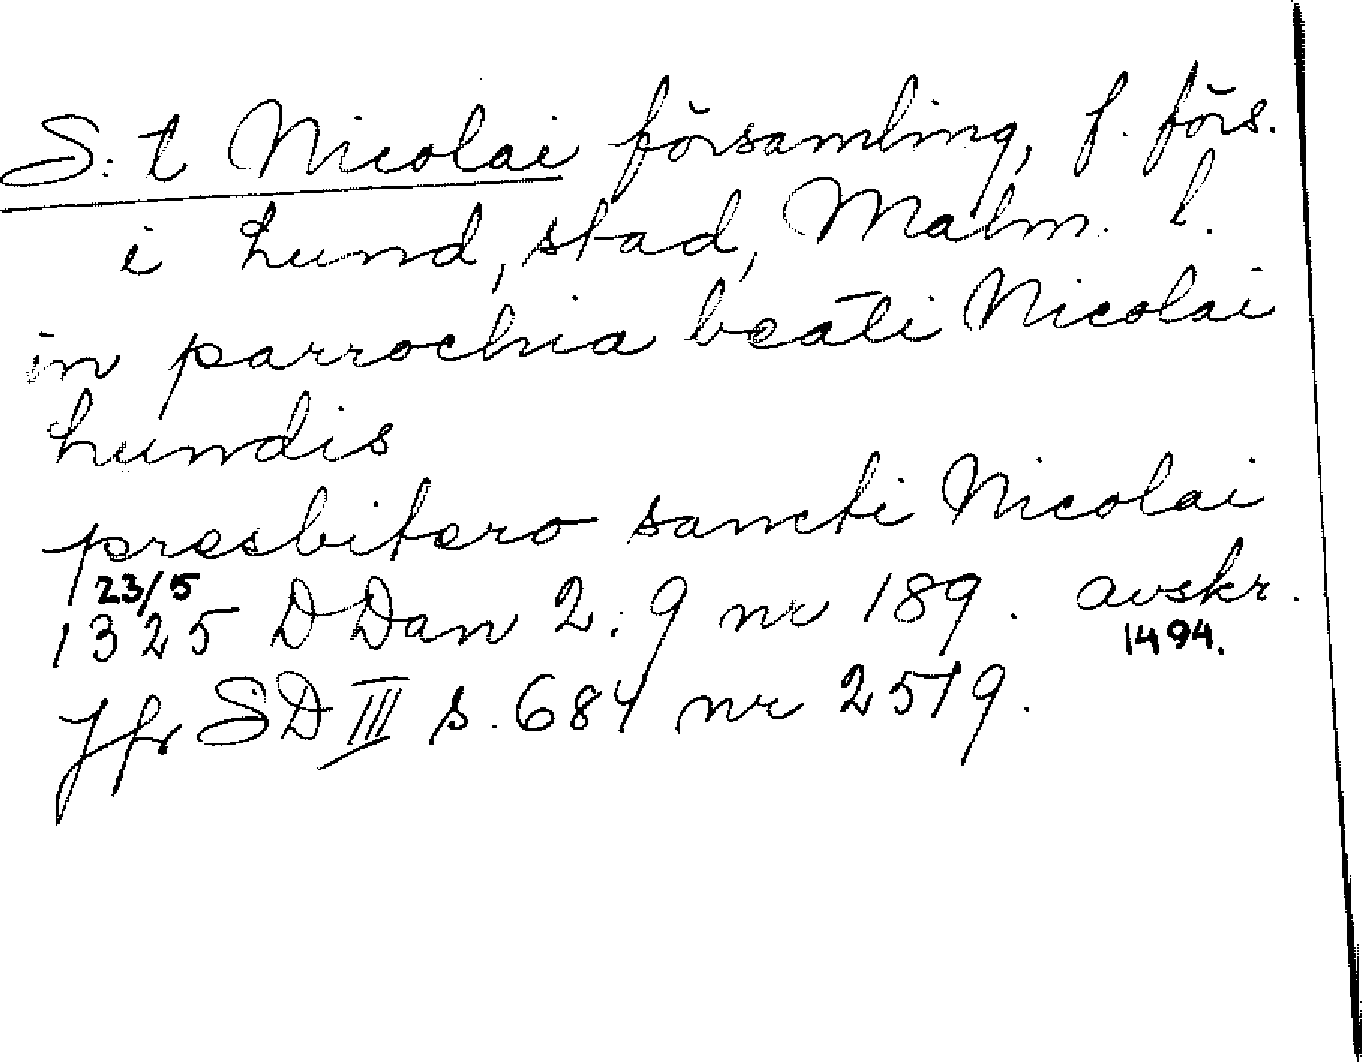 S:t Nicolai församling, f. förs.
i Lund, stad, Malm. l.
in parrochia beati Nicolai
Lundis
presbitero sancti Nicolai
23/5
1325 DDan 2:9 nr 189. avskr.
1494.
Jfr SD III s. 684 nr 2519.